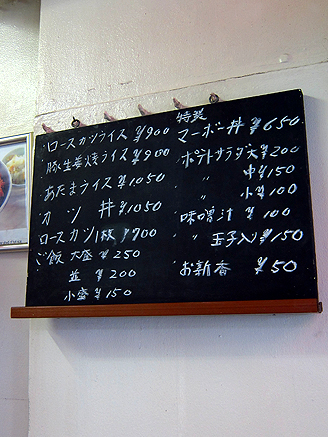 ロースカツライス ¥900
豚生姜焼ライス ¥900
あたまライス ¥1050
カツ丼 ¥1050
ロースカツ1枚 ¥700
ご飯 大盛 ¥250
並 ¥200
小盛 ¥150
特製
マーボー丼 ¥650
ポテトサラダ大 ¥200
〃 中 ¥150
〃 小 ¥100
味噌汁 ¥100
〃 玉子入り ¥150
お新香 ¥50